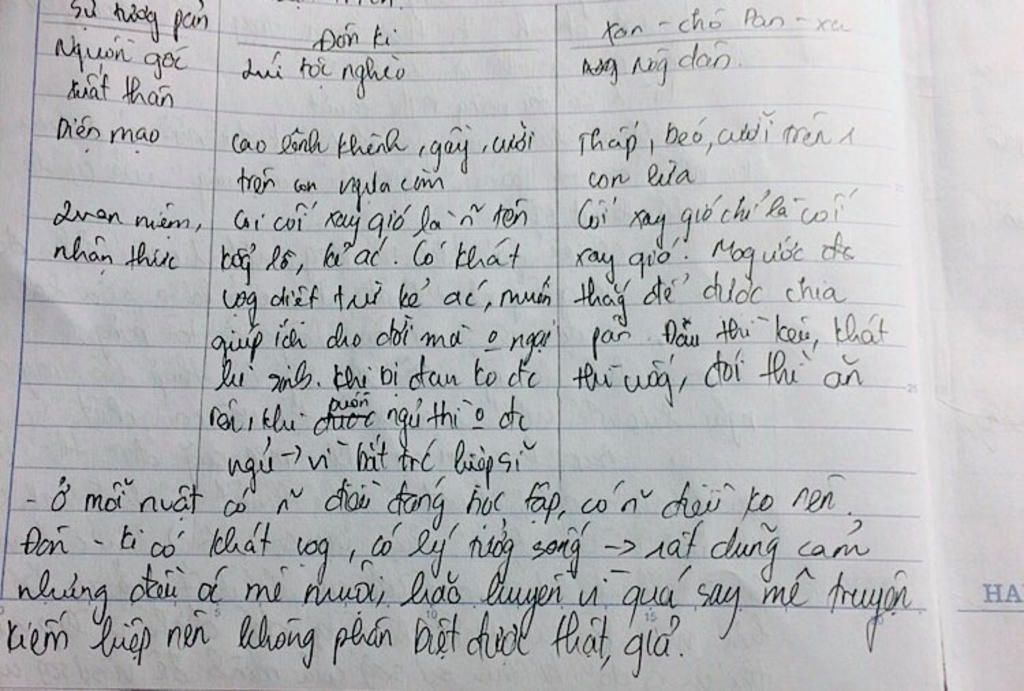 Sự tương pản Đôn ki Xan - chô Pan - xa
Nguồn gốc Quí tộc nghèo Nôg dân.
xuất thân
Diện mạo Cao lênh khênh, gầy, cưỡi Thấp, béo, cưỡi trên 1
trên con ngựa còm con lừa
Quan niệm, Coi cối xay gió là ~ tên Cối xay gió chỉ là cối
nhận thức khổg lồ, kẻ ác. Có khát xay gió. Mog ước đc
vọg diệt trừ kẻ ác, muốn thắg để được chia
giúp ích cho đời mà o ngại pần. Đau thì kêu, khát
hi sinh. Khi bị đau ko đc thì uốg, đói thì ăn
rên, khi buồn ngủ thì o đc
ngủ → vì bắt trc hiệp sĩ
- Ở mỗi nvật có ~ điều đáng học tập, có ~ điều ko nên.
Đôn - ki có khát vọg, có lý tưởg sống → rất dũng cảm
nhưng đều là mê muội, hão huyền vì quá say mê truyện
kiếm hiệp nên không phân biệt được thật, giả.
HA